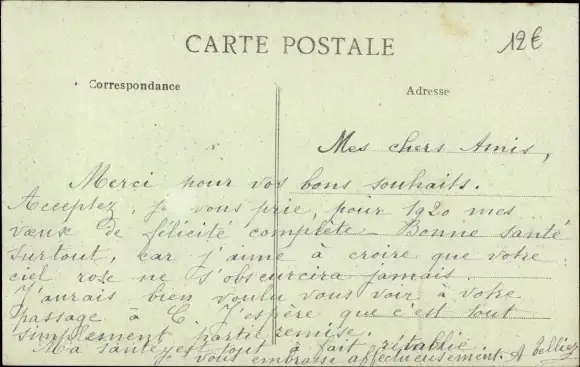 12€
CARTE POSTALE
Correspondance
Adresse
Mes chers Amis,
Merci pour vos bons souhaits.
Acceptez, je vous prie, pour 1920 mes
vœux de félicité complète. Bonne santé
surtout, car j'aime à croire que votre
ciel rose ne s'obscurcira jamais.
J'aurais bien voulu vous voir à votre
passage à C. J'espère que c'est tout
simplement partie remise.
Ma santé est tout à fait rétablie.
Je vous embrasse affectueusement. A